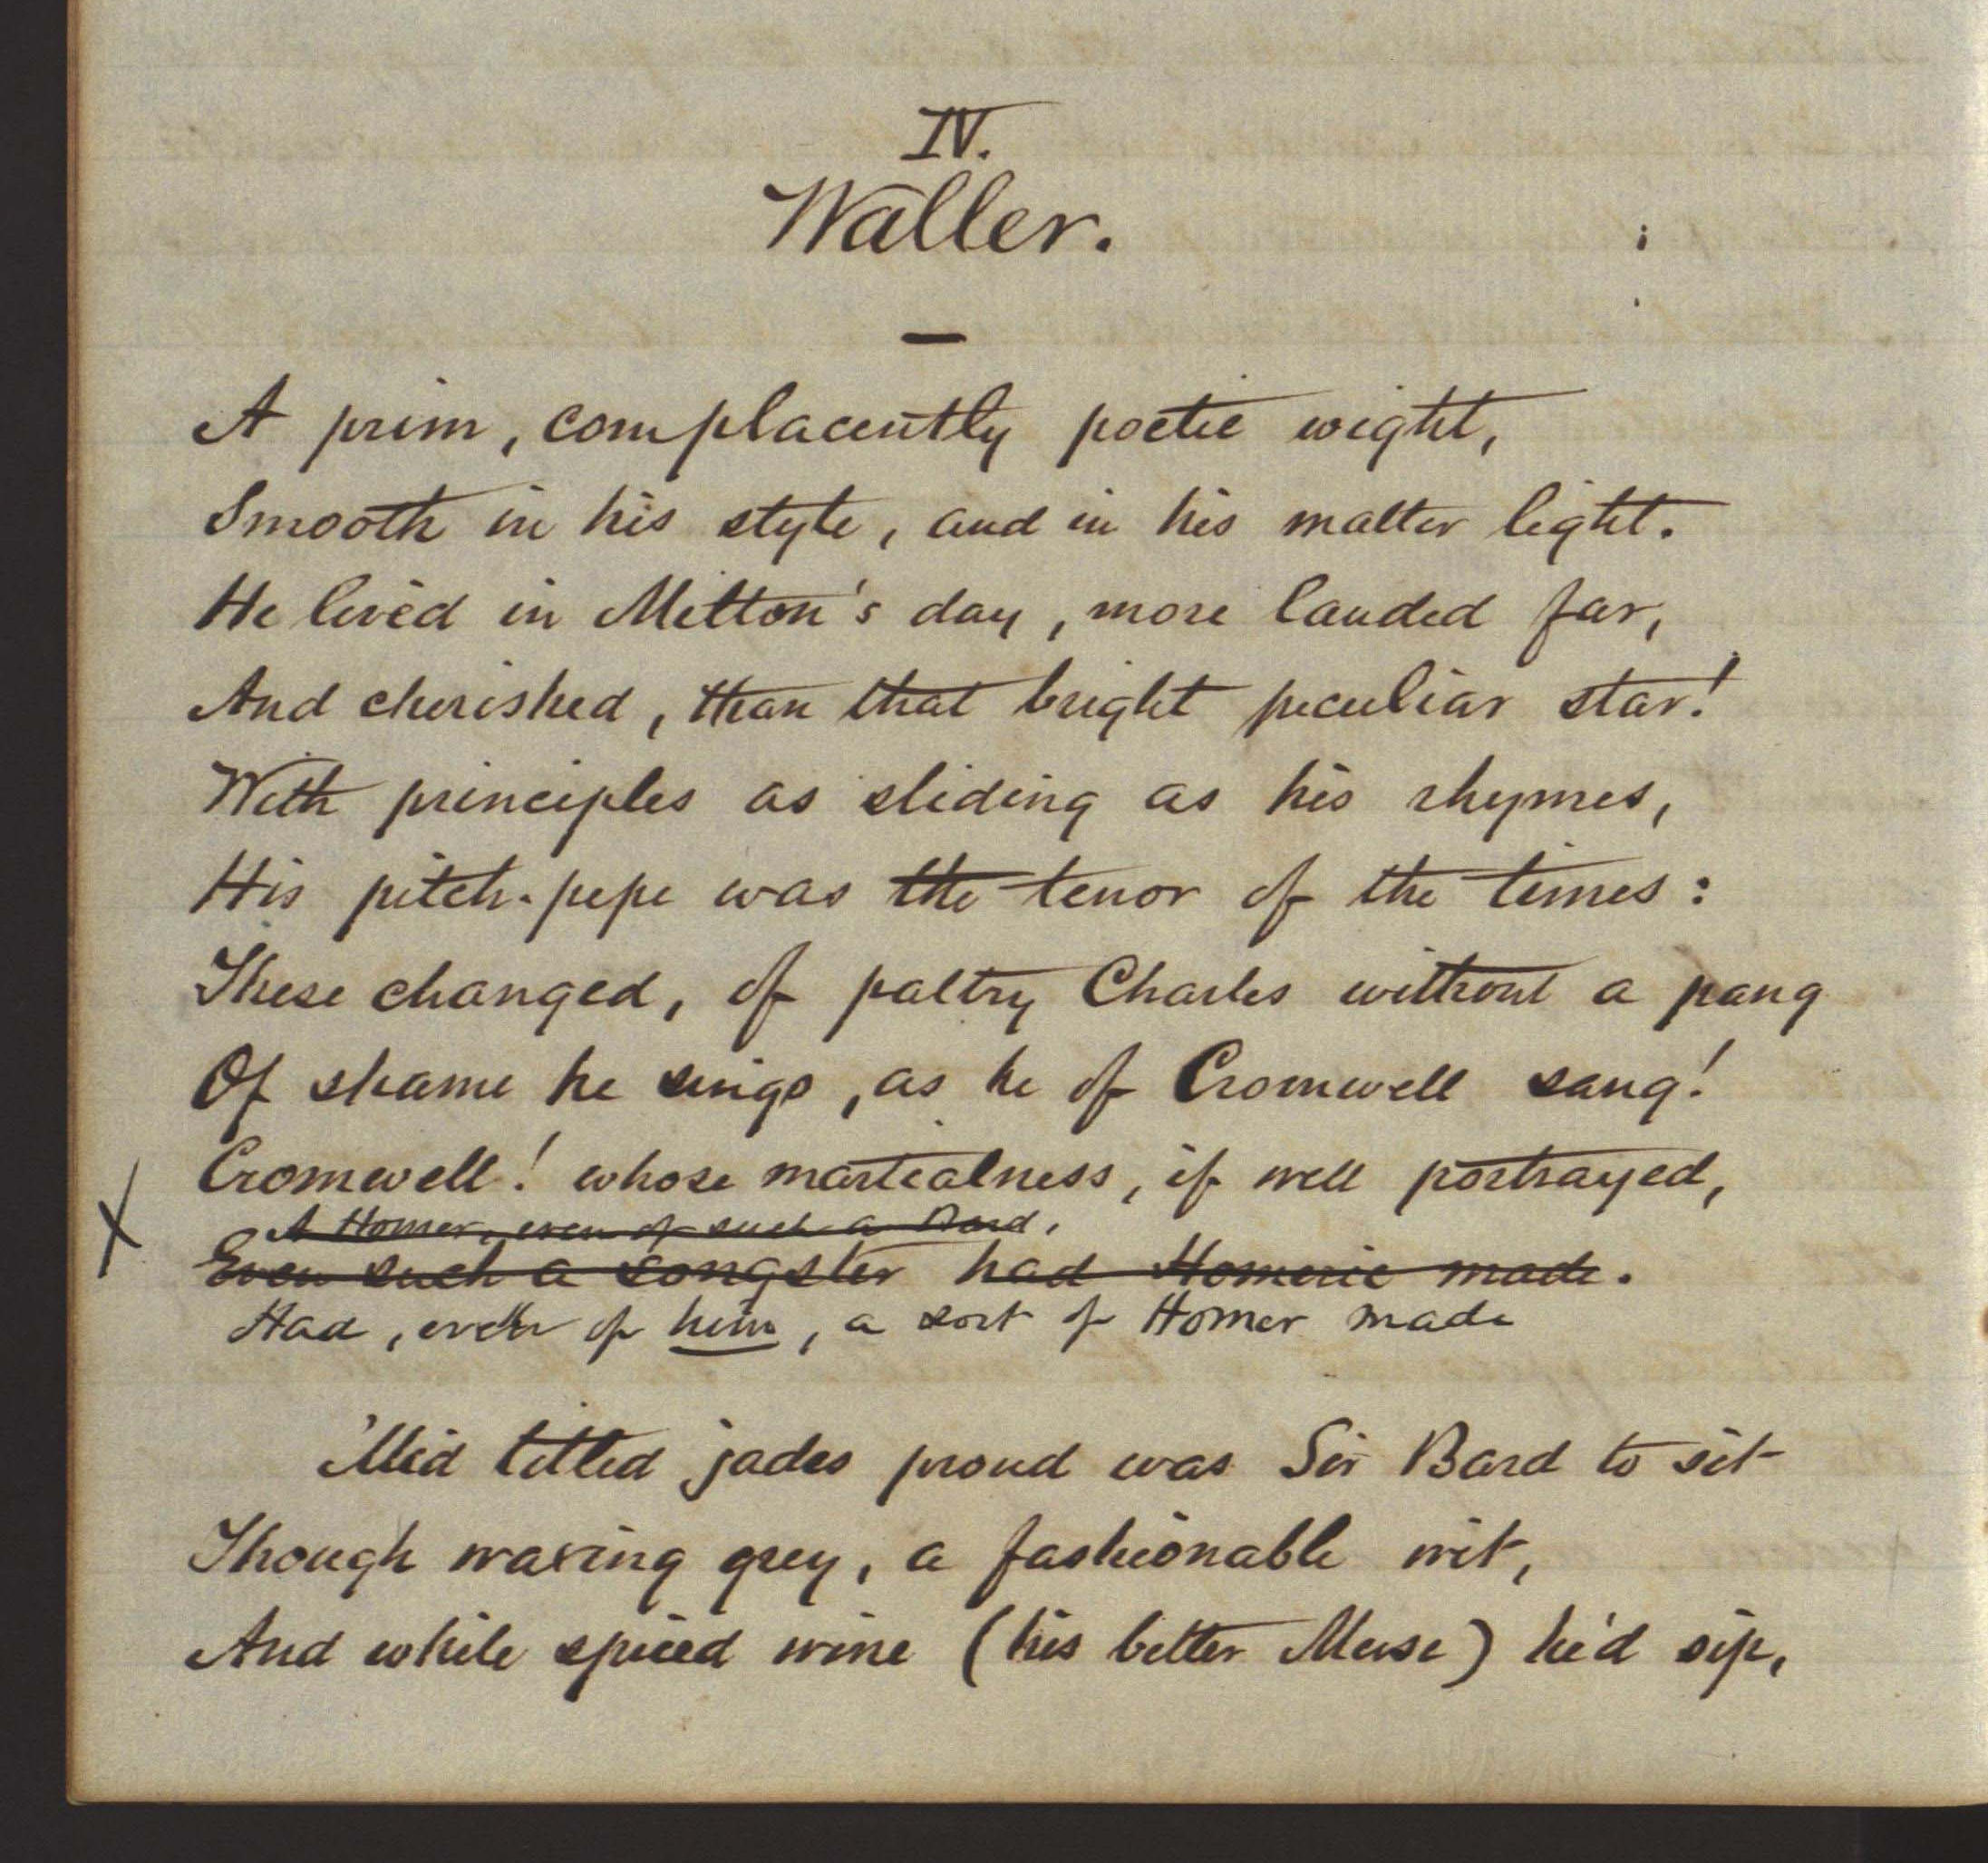 IV.
Waller.
—
A prim, complacently poetic wight,
Smooth in his style, and in his matter light.
He lived in Milton's day, more lauded far,
And cherished, than that bright peculiar star!
With principles as sliding as his rhymes,
His pitch-pipe was the tenor of the times:
These changed, of paltry Charles without a pang
Of shame he sings, as he of Cromwell sang!
Cromwell! whose martialness, if well portrayed,
X
A Homer, even of such a Bard,
Even such a songster had Homeric made.
Had, even of him, a sort of Homer made
'Mid titled jades proud was Sir Bard to sit
Though waxing grey, a fashionable wit,
And while spiced wine (his better Muse) he'd sip,